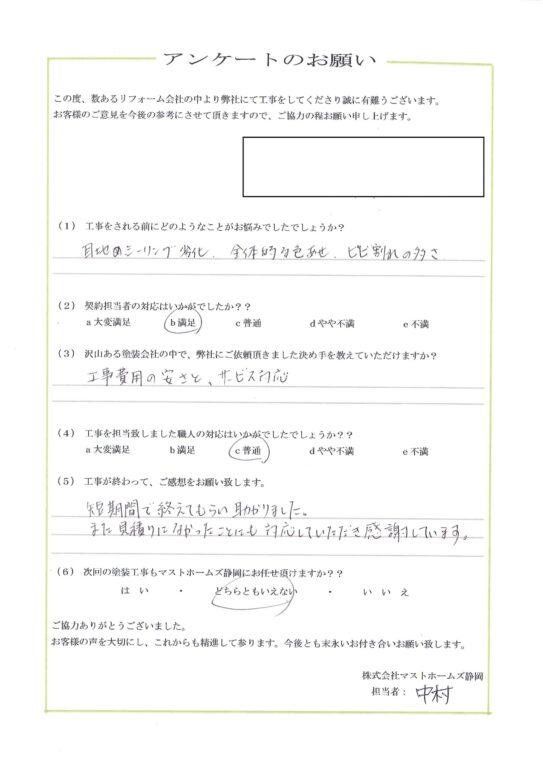 アンケートのお願い
この度、数あるリフォーム会社の中より弊社にて工事をしてくださり誠に有難うございます。
お客様のご意見を今後の参考にさせて頂きますので、ご協力の程お願い申し上げます。
(1) 工事をされる前にどのようなことがお悩みでしたでしょうか？
目地のシーリング劣化、全体的な色あせ、ヒビ割れの多さ
(2) 契約担当者の対応はいかがでしたか？？
a 大変満足 b 満足 c 普通 d やや不満 e 不満
(3) 沢山ある塗装会社の中で、弊社にご依頼頂きました決め手を教えていただけますか？
工事費用の安さと、サービス対応
(4) 工事を担当致しました職人の対応はいかがでしたでしょうか？？
a 大変満足 b 満足 c 普通 d やや不満 e 不満
(5) 工事が終わって、ご感想をお願い致します。
短期間で終えてもらい助かりました。
また見積りになかったことにも対応していただき感謝しています。
(6) 次回の塗装工事もマストホームズ静岡にお任せ頂けますか？？
はい ・ どちらともいえない ・ いいえ
ご協力ありがとうございました。
お客様の声を大切にし、これからも精進して参ります。今後とも末永いお付き合いお願い致します。
株式会社マストホームズ静岡
担当者： 中村